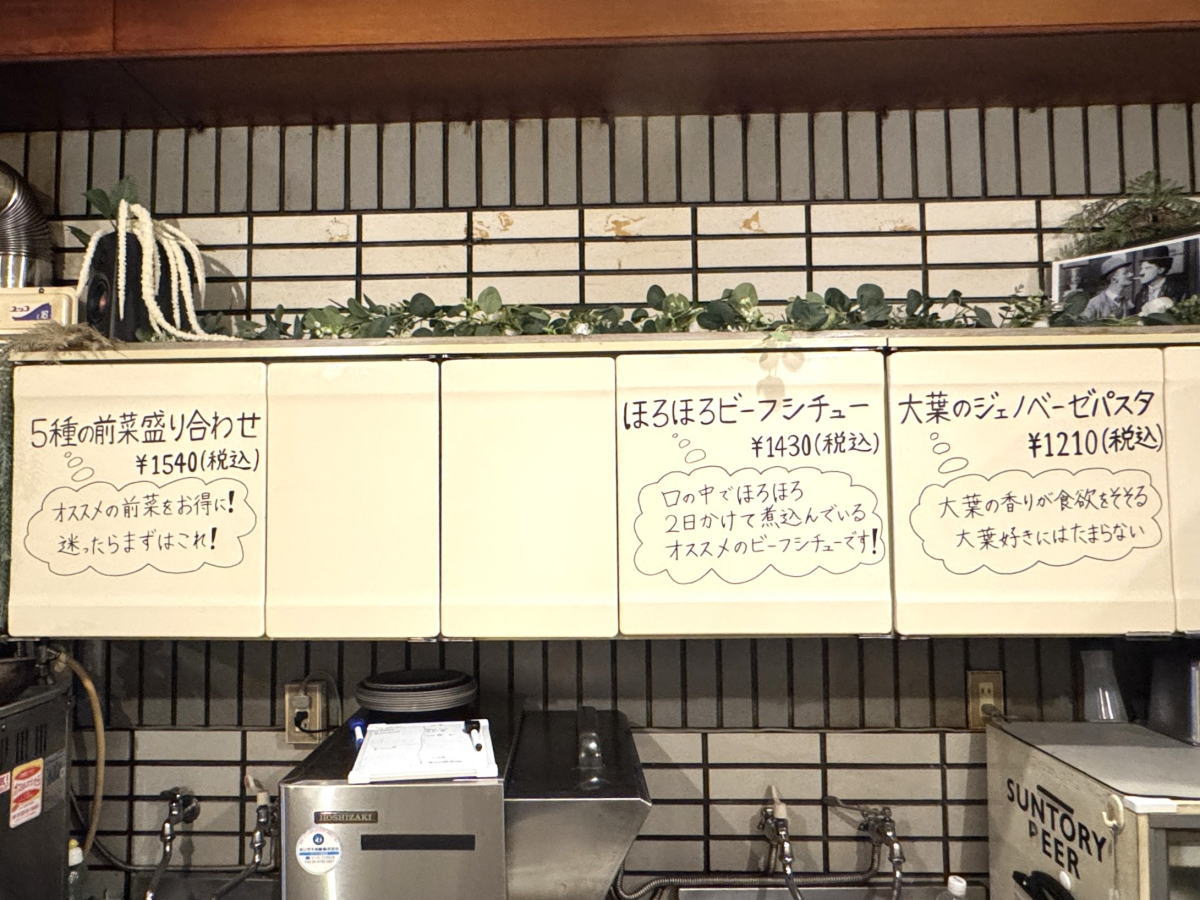 5種の前菜盛り合わせ
¥1540(税込)
オススメの前菜をお得に!
迷ったらまずはこれ!
ほろほろビーフシチュー
¥1430(税込)
口の中でほろほろ
2日かけて煮込んでいる
オススメのビーフシチューです!
大葉のジェノベーゼパスタ
¥1210(税込)
大葉の香りが食欲をそそる
大葉好きにはたまらない
HOSHIZAKI
SUNTORY
PEER